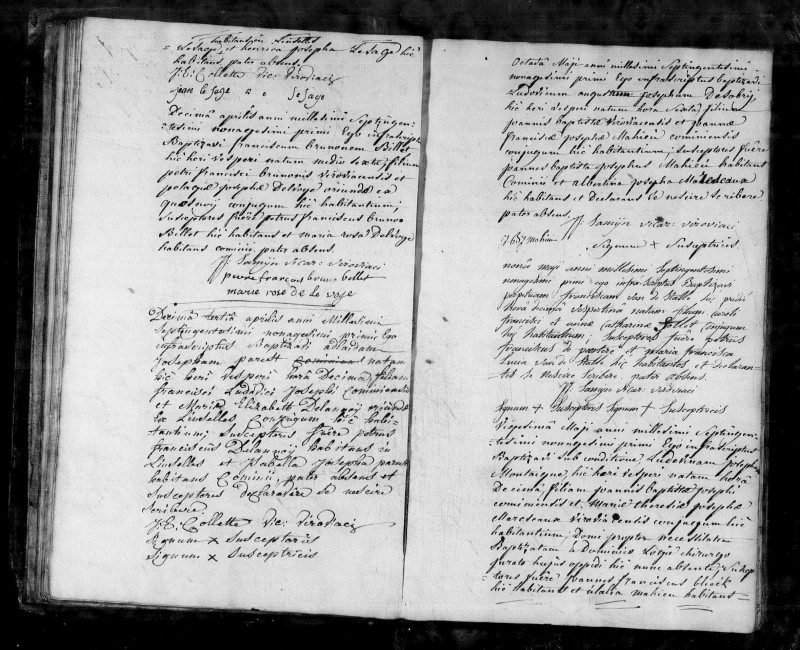 habitantium Linselles
et henrica josepha Lesage hic
habitans, pater absens.
J: C: Collette vic: viroviaci
jean le sage Lesage
Decima aprilis anni millesimi Septingen=
=tesimi nonagesimi primi Ego infrascriptus
Baptizavi franciscum brunonem Billet
hic heri vesperi natum medio sexta, filium
petri francisci brunonis viroviacensis et
josepha Delevoye oriunda ex
conjugum hic habitantium;
Susceptores fuere petrus franciscus bruno
Billet hic habitans et maria rosa Delevoye
habitans cominii, pater absens.
J: Samyn vicar: viroviaci
pierre françois bruno bellet
marie rose de le voye
Decima tertia aprilis anni Millesimi
Septingentesimi nonagesimi primi Ego
infrascriptus Baptizavi adlaidam
Josepham parent natam
hic heri vesperi hora Decima, filiam
francisci Ludovici Josephi Cominiensis
et Mariæ Elizabeth Delannoÿ oriunda
ex Linselles Conjugum hic habi-
tantium; Susceptores fuere petrus
franciscus Delannoÿ habitans in
Linselles et Isabella Josepha parent
habitans Cominii, pater absens et
Susceptores declaravere se nescire
scribere.
J: C: Collette vic: viroviaci
Signum x Susceptoris
Signum x Susceptricis
Octava Maji anni millesimi Septingentesimi
nonagesimi primi Ego infrascriptus baptizavi
Ludovicum josephum
hic heri vesperi natum hora sexta, filium
joannis baptistæ viroviacensis et joannæ
franciscæ josephæ Mahieu cominiensis
conjugum hic habitantium; Susceptores fuere
joannes baptista josephus Mahieu habitans
Cominii et albertina josepha
hic habitans et Declarans se nescire scribere
pater absens.
J: Samyn vicar: viroviaci
Signum + Susceptricis
nona maji anni millesimi Septingentesimi
nonagesimi primi ego infrascriptus Baptizavi
franciscam van de Walle hic pridie
hora quinta vespertina natam, filiam caroli
francisci et annæ catharinæ conjugum
hic habitantium; Susceptores fuere petrus
franciscus de et maria francisca
Lucia van de Walle hic habitantes et declaran-
tes se nescire scribere pater absens.
J: Samyn vicar: viroviaci
Signum + Susceptoris Signum + Susceptricis
Vigesima Maji anni millesimi Septingen-
tesimi nonagesimi primi Ego infrascriptus
Baptizavi sub conditione Ludovicam josepham
Montaigne, hic heri vesperi natam hora
Decima, filiam joannis baptistæ josephi
cominiensis et Mariæ theresiæ josephæ
viroviacensis conjugum hic
habitantium; Domi propter necessitatem
Baptizatam a Dominico chirurgo
jurato hujus oppidi hic nunc absente; Suscep=
tores fuere joannes franciscus
hic habitans et mahieu habitans